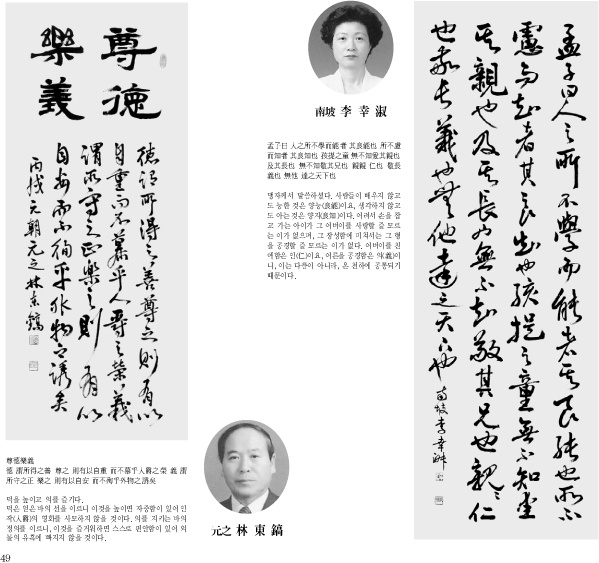 尊德
樂義
德謂所得之善尊之則有以
自重而不慕乎人爵之榮義
謂所守之正樂之則有以
自安而不徇乎外物之誘矣
丙戌元朝元之林東鎬
尊德樂義
德 謂所得之善 尊之 則有以自重 而不慕乎人爵之榮 義 謂
所守之正 樂之 則有以自安 而不徇乎外物之誘矣
덕을 높이고 의를 즐기다.
덕은 얻은 바의 선을 이르니 이것을 높이면 자중함이 있어 인
작(人爵)의 영화를 사모하지 않을 것이다. 의를 지키는 바의
정의를 이르니, 이것을 즐거워하면 스스로 편안함이 있어 외
물의 유혹에 빠지지 않을 것이다.
元之 林 東 鎬
南坡 李 幸 淑
孟子曰 人之所不學而能者 其良能也 所不慮
而知者 其良知也 孩提之童 無不知愛其親也
及其長也 無不知敬其兄也 親親 仁也 敬長
義也 無他 達之天下也
맹자께서 말씀하셨다. 사람들이 배우지 않고
도 능한 것은 양능(良能)이요, 생각하지 않고
도 아는 것은 양지(良知)이다. 어려서 손을 잡
고 가는 아이가 그 어버이를 사랑할 줄 모르
는 이가 없으며, 그 장성함에 미쳐서는 그 형
을 공경할 줄 모르는 이가 없다. 어버이를 친
애함은 인(仁)이요, 어른을 공경함은 의(義)이
니, 이는 다름이 아니라, 온 천하에 공통되기
때문이다.
孟子曰人之所不學而能者其良能也所不
慮而知者其良知也孩提之童無不知愛
其親也及其長也無不知敬其兄也親親仁
也敬長義也無他達之天下也 南坡李幸淑
49